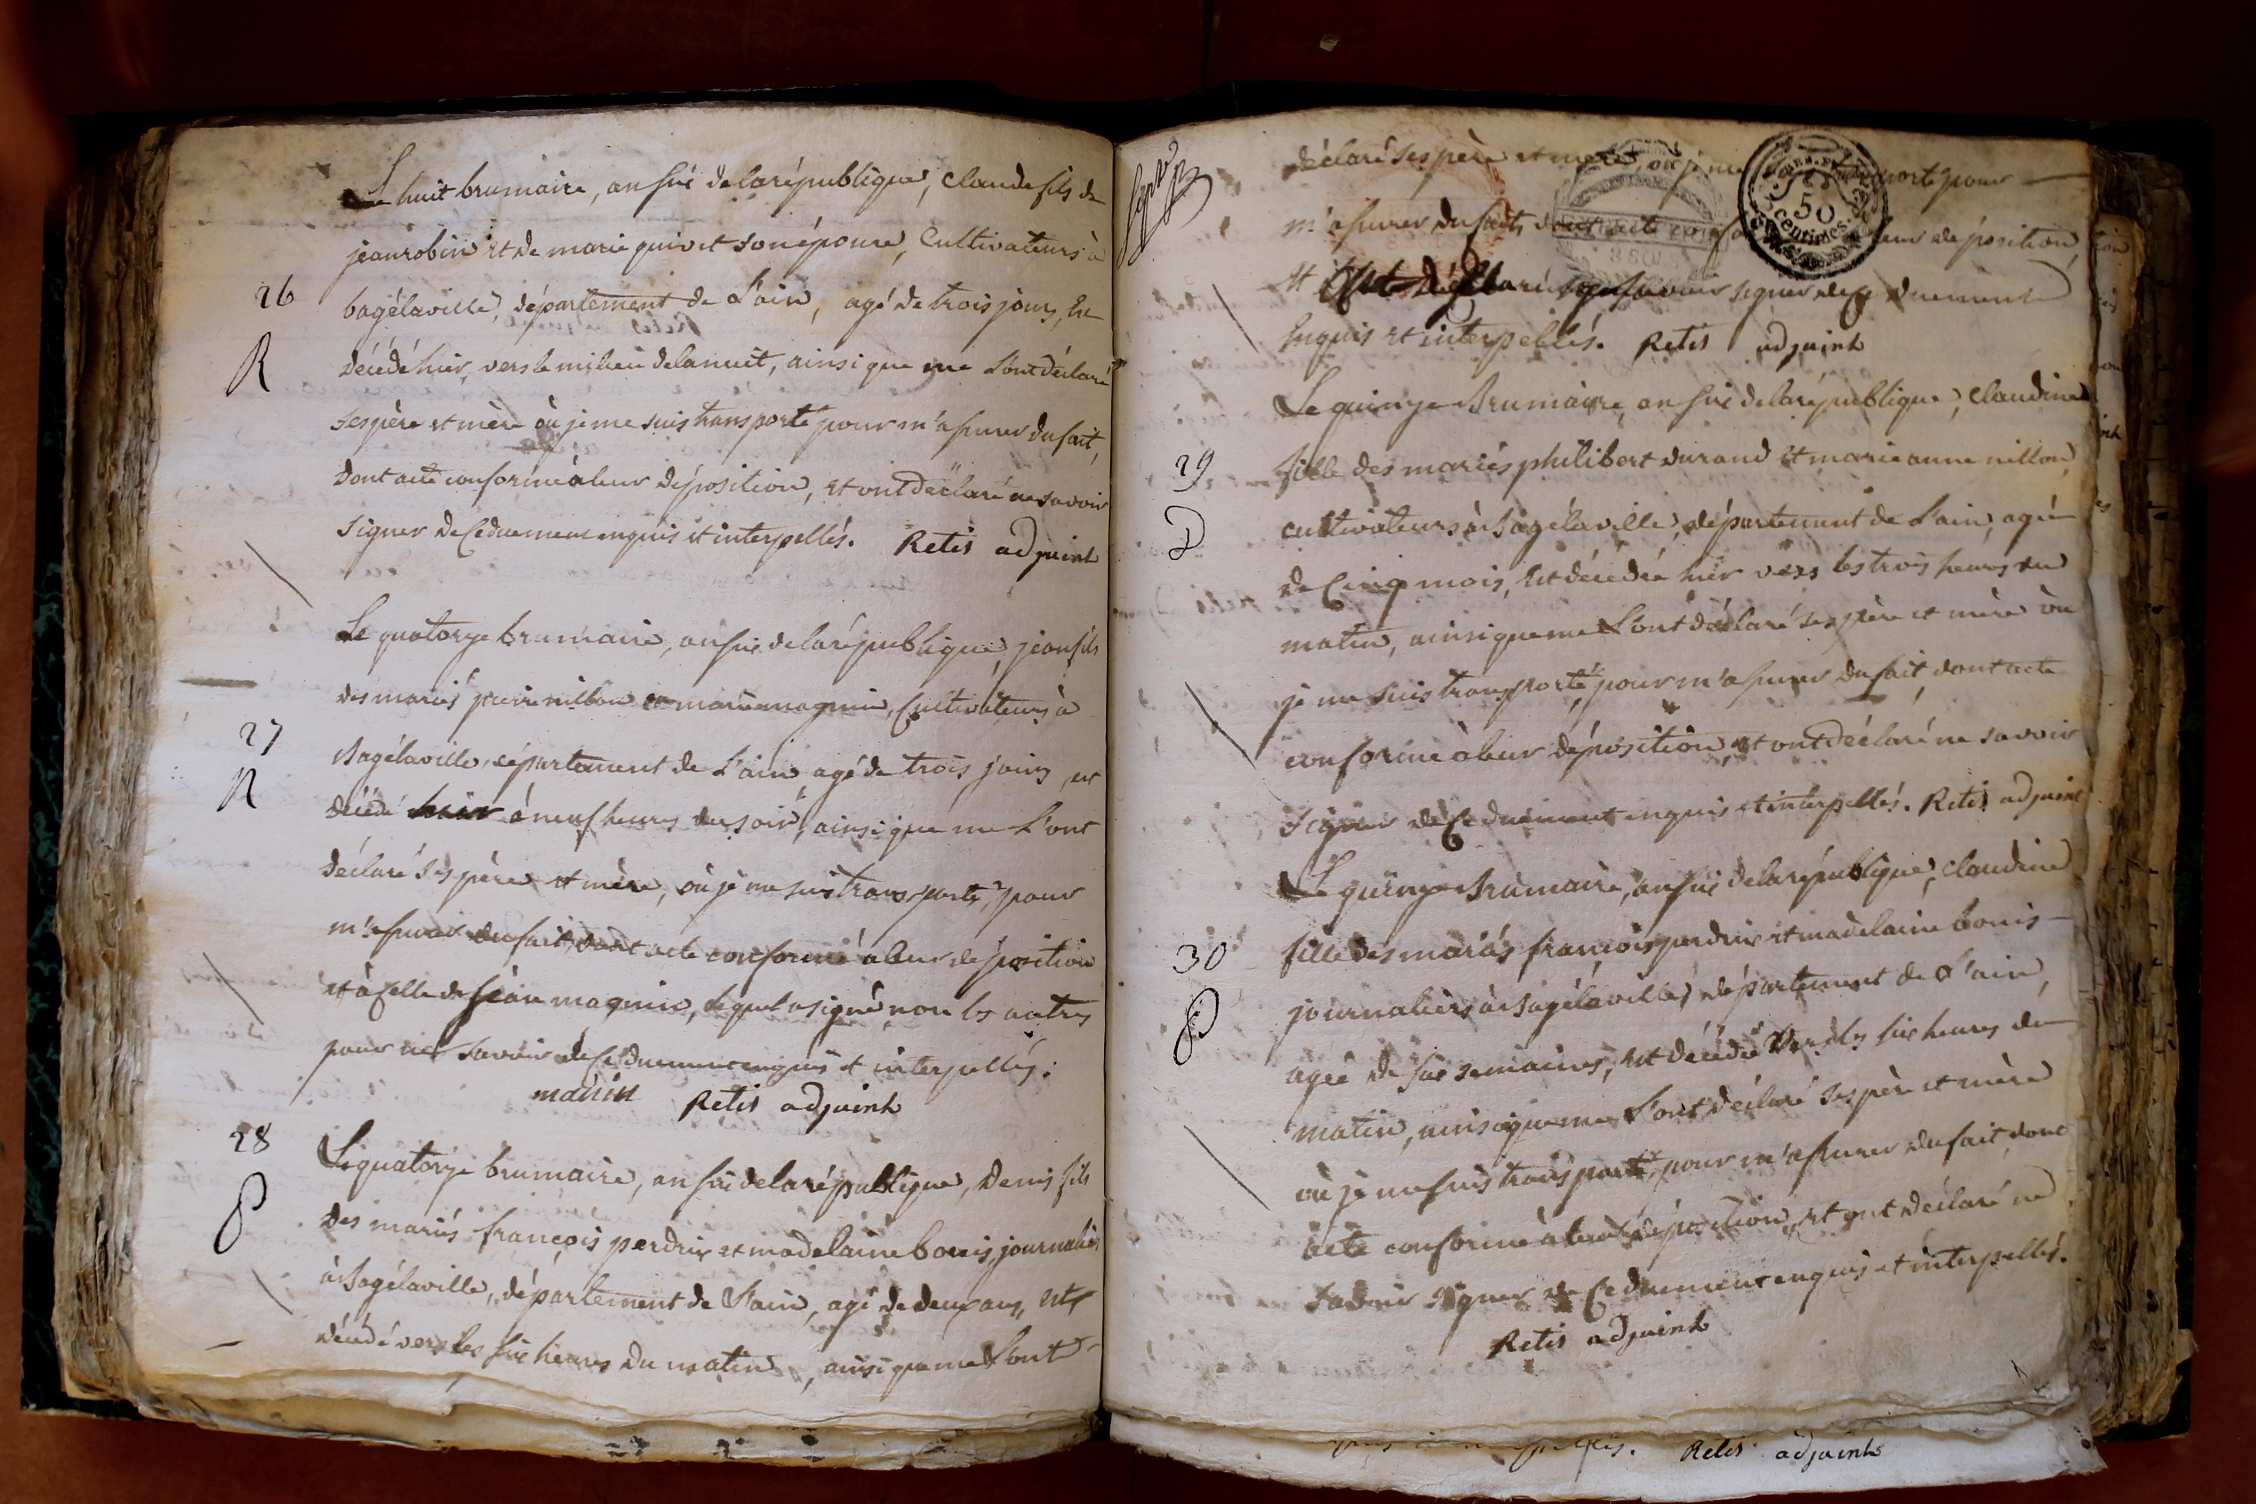 Le huit brumaire, an six de la république, Claude fils de
jean robin et de marie quivet son épouse, Cultivateurs à
26
bagé la ville, département de L'ain, agé de trois jours, Est
R
décédé hier, vers le milieu de la nuit, ainsi que me L'ont déclaré
ses père et mère où je me suis transporté pour m'assurer du fait,
dont acte conforme à leur déposition, et ont déclaré ne savoir
signer de Ce duement enquis et interpellés. Retis adjoint
Le quatorze brumaire, an six de la république, jean fils
des mariés pierre nillon et marie magnin, Cultivateurs à
27
Bagé la ville, département de L'ain, agé de trois jours, est
R
décédé hier à neuf heures du soir, ainsi que me L'ont
déclaré ses père et mère, où je me suis transporté, pour
m'assurer du fait, dont acte conforme à leur déposition
et à Celle de jean magnin, lequel a signé, non les autres
pour ne savoir de Ce duement enquis et interpellés.
manin Retis adjoint
28
Le quatorze brumaire, an six de la république, Denis fils
P
des mariés françois perdrix et madelaine bonis, journaliers
à Bagé la ville, département de L'ain, agé de deux ans, est
décédé vers les six heures du matin, ainsi que me L'ont
déclaré ses père et mère où je me transporté pour
50
centimes
m'assurer du fait, dont acte leur déposition,
et Ont Déclaré ne savoir signer de Ce duement
Enquis et interpellés. Retis adjoint
Le quinze Brumaire, an six de la république, Claudine
29
fille des mariés philibert durand et marie anne nillon,
D
cultivateurs à Bagé la ville, département de L'ain, agée
de Cinq mois, Est décédée hier vers les trois heures du
matin, ainsi que me L'ont déclaré ses père et mère où
je me suis transporté, pour m'assurer du fait, dont acte
conforme à leur déposition, et ont déclaré ne savoir
signer de Ce duement enquis et interpellés. Retis adjoint
Le quinze Brumaire, an six de la république, Claudine
30
fille des mariés françois perdrix et madelaine bonis
P
journaliers à Bagé la ville, département de L'ain,
agée de six semaines, est décédée vers les six heures du
matin, ainsi que me L'ont déclaré ses père et mère
où je me suis transporté, pour m'assurer du fait, dont
acte conforme à leur déposition, et ont déclaré ne
savoir signer de Ce duement enquis et interpellés.
Retis adjoint
Retis adjoint